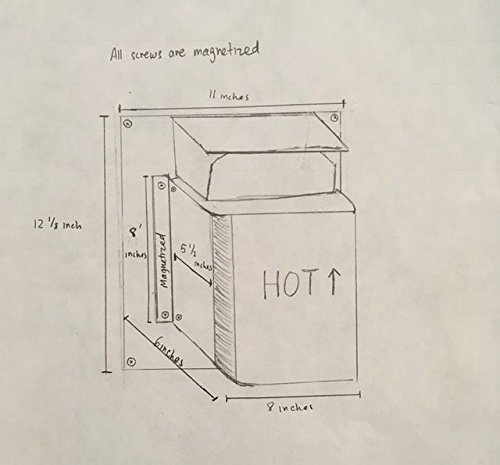 All screws are magnetized
11 inches
12 1/8 inch
8' inches
Magnetized
5 1/2 inches
HOT ↑
6 inches
8 inches